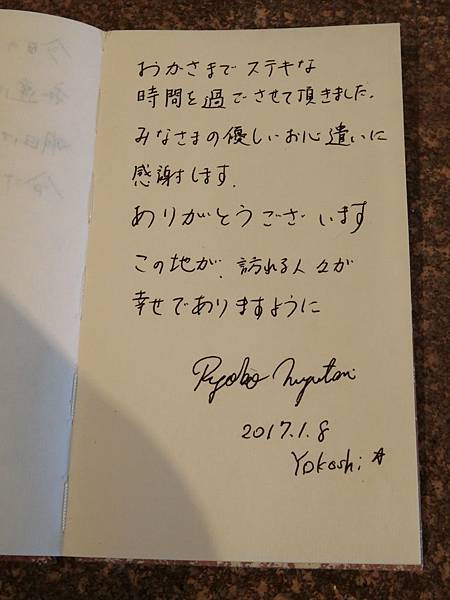 おかさまで ステキな
時間を過でさせて頂きました.
みなさまの優しいお心遣いに
感謝します.
ありがとうございます
この地が、訪れる人々が
幸せでありますように
2017.1.8
Yokoshi ☆